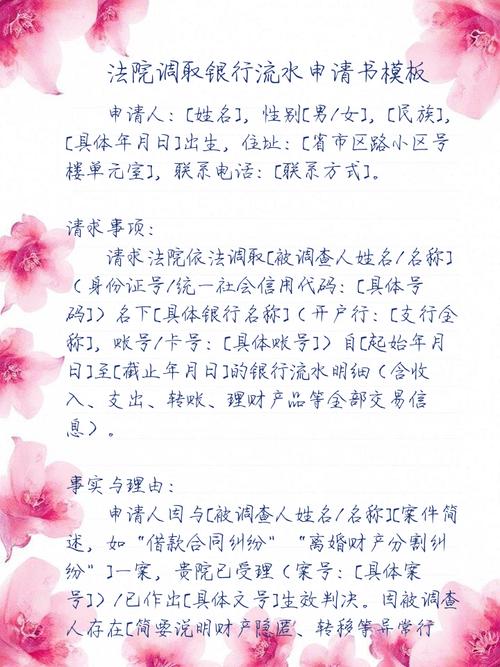 法院调取银行流水申请书模板
申请人：[姓名]，性别[男/女]，[民族]，
[具体年月日]出生，住址：[省市区路小区号
楼单元室]，联系电话：[联系方式]。
请求事项：
请求法院依法调取[被调查人姓名/名称]
（身份证号/统一社会信用代码：[具体号
码]）名下[具体银行名称]（开户行：[支行全
称]，账号/卡号：[具体账号]）自[起始年月
日]至[截止年月日]的银行流水明细（含收
入、支出、转账、理财产品等全部交易信
息）。
事实与理由：
申请人因与[被调查人姓名/名称][案件简
述，如“借款合同纠纷”“离婚财产分割纠
纷”]一案，贵院已受理（案号：[具体案
号]）/已作出[具体文号]生效判决。因被调查
人存在[简要说明财产隐匿、转移等异常行